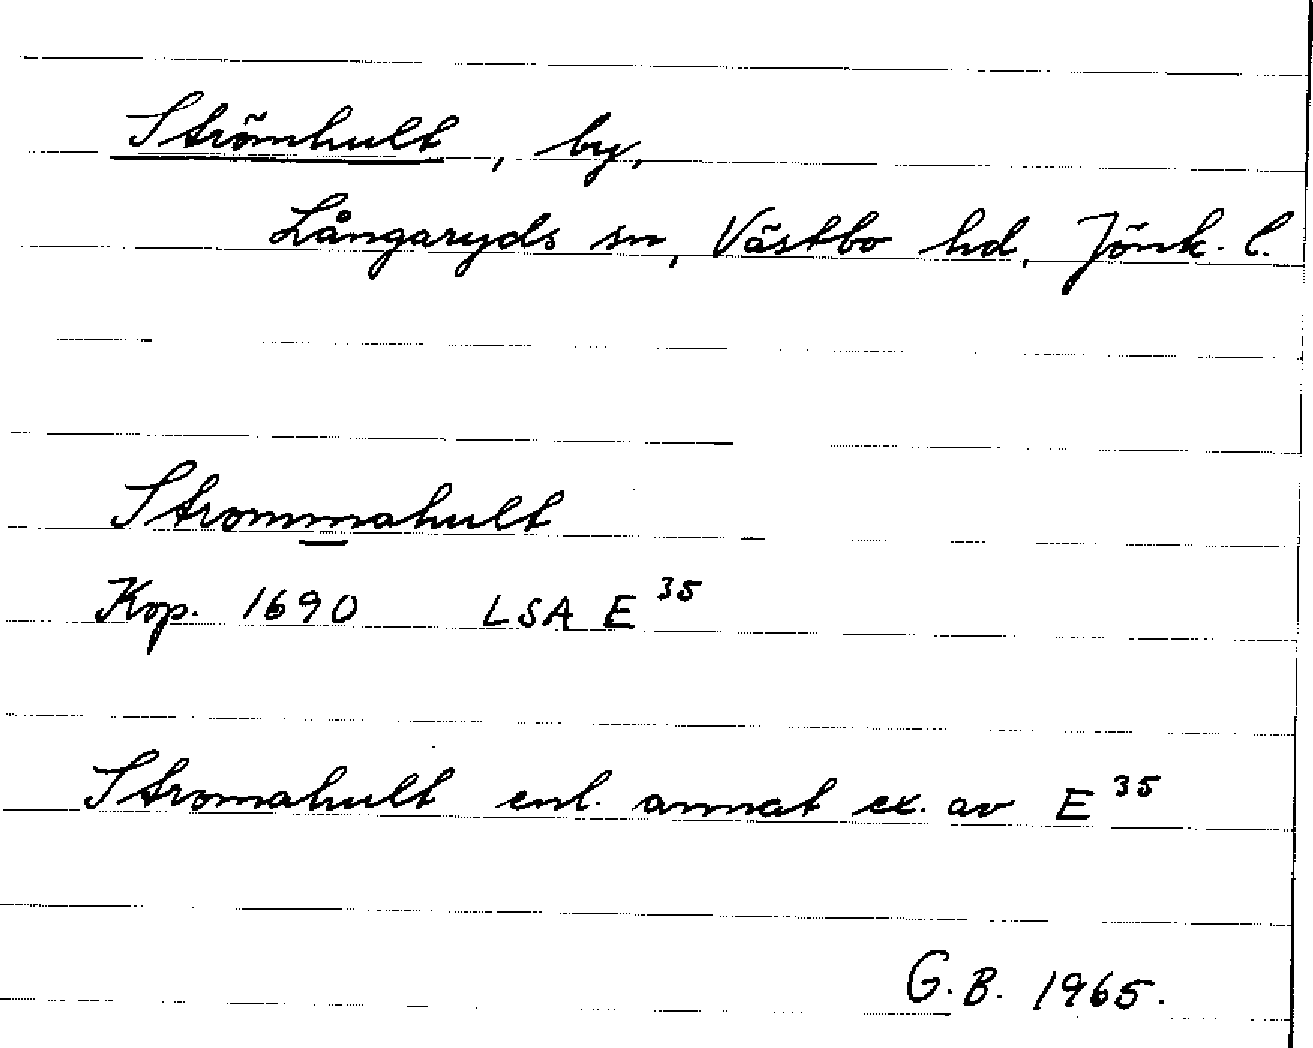 Strömhult, by,
Långaryds sn, Västbo hd, Jönk. l.
Strommahult
Kop. 1690 LSA E 35
Stromahult enl. annat ex. av E 35
G.B. 1965.